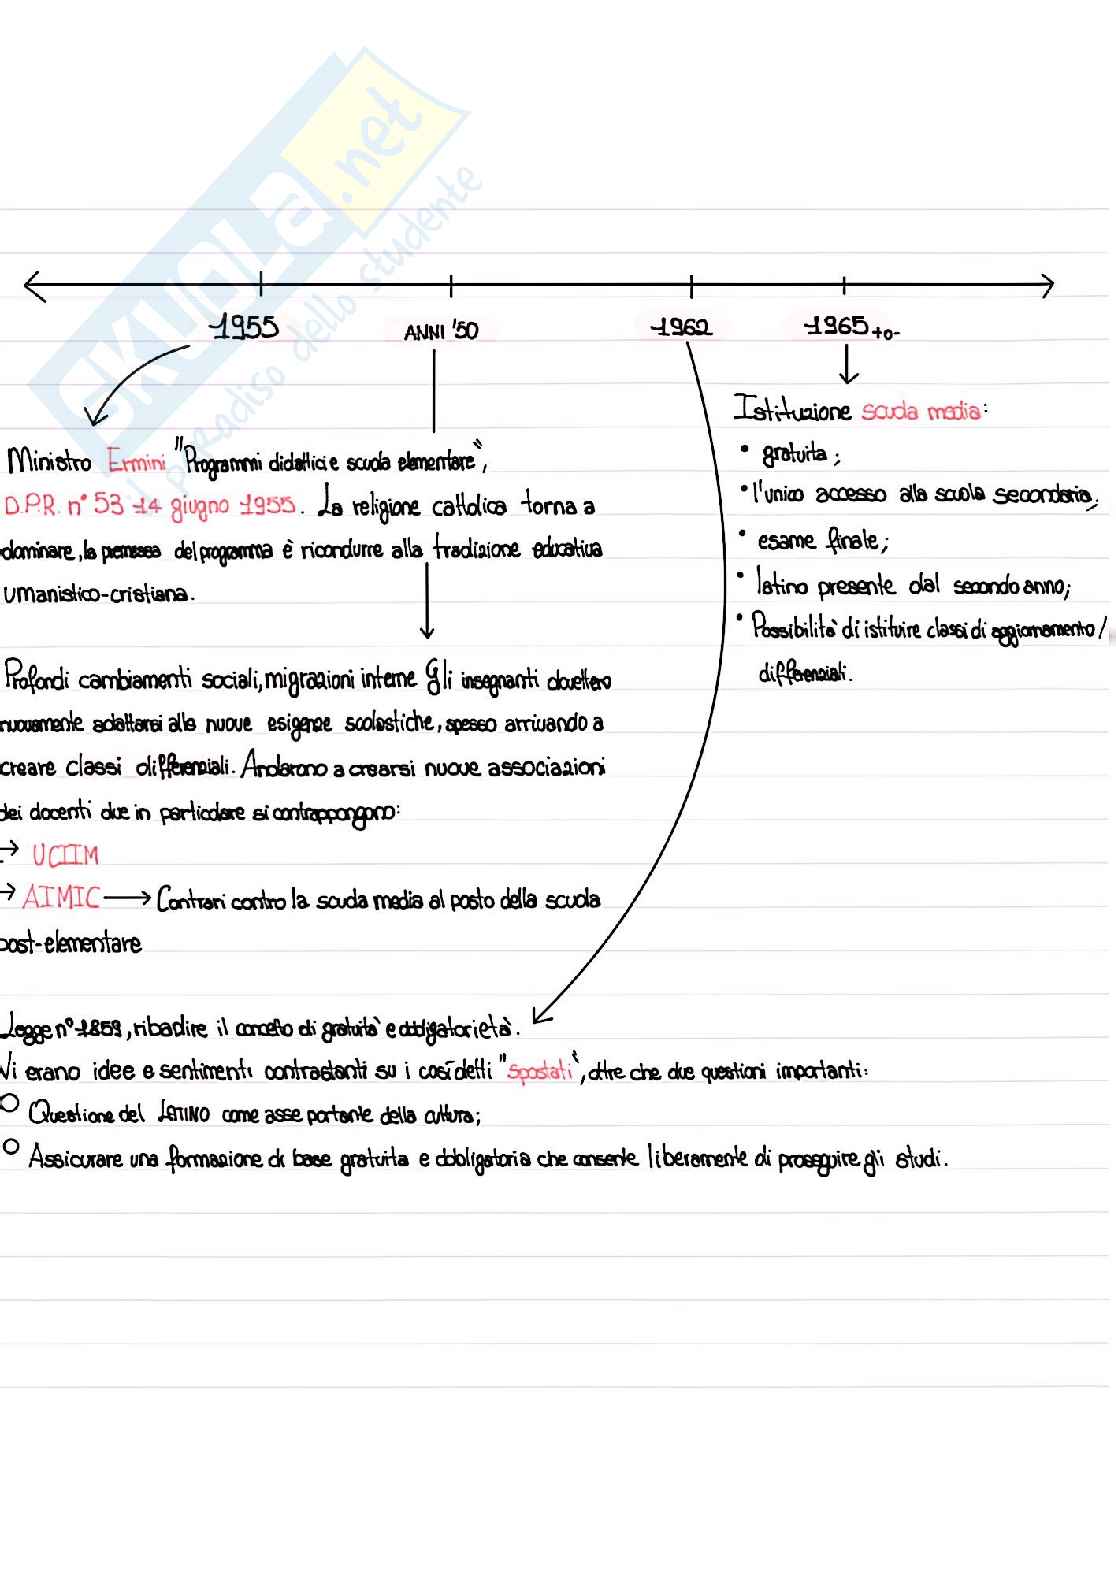 SKUOLA.net
il paradiso dello studente
1955
ANNI '50
1962
1965 +o-
Istituzione scuola media:
• gratuita;
• l'unico accesso alla scuola secondaria;
• esame finale;
• latino presente dal secondo anno;
• Possibilità di istituire classi di aggiornamento/
differenziali.
Ministro Ermini "Programmi didattici e scuola elementare",
D.P.R. n° 53 14 giugno 1955. La religione cattolica torna a
dominare, la premessa del programma è ricondurre alla tradizione educativa
umanistico-cristiana.
Profondi cambiamenti sociali, migrazioni interne Gli insegnanti dovettero
nuovamente adattarsi alle nuove esigenze scolastiche, spesso arrivando a
creare classi differenziali. Andarono a crearsi nuove associazioni
dei docenti due in particolare si contrappongono:
→ UCIIM
→ AIMIC → Contrari contro la scuola media al posto della scuola
post-elementare
Legge n° 1859, ribadire il concetto di gratuità e obbligatorietà.
Vi erano idee e sentimenti contrastanti su i così detti "spostati", oltre che due questioni importanti:
○ Questione del LATINO come asse portante della cultura;
○ Assicurare una formazione di base gratuita e obbligatoria che consente liberamente di proseguire gli studi.